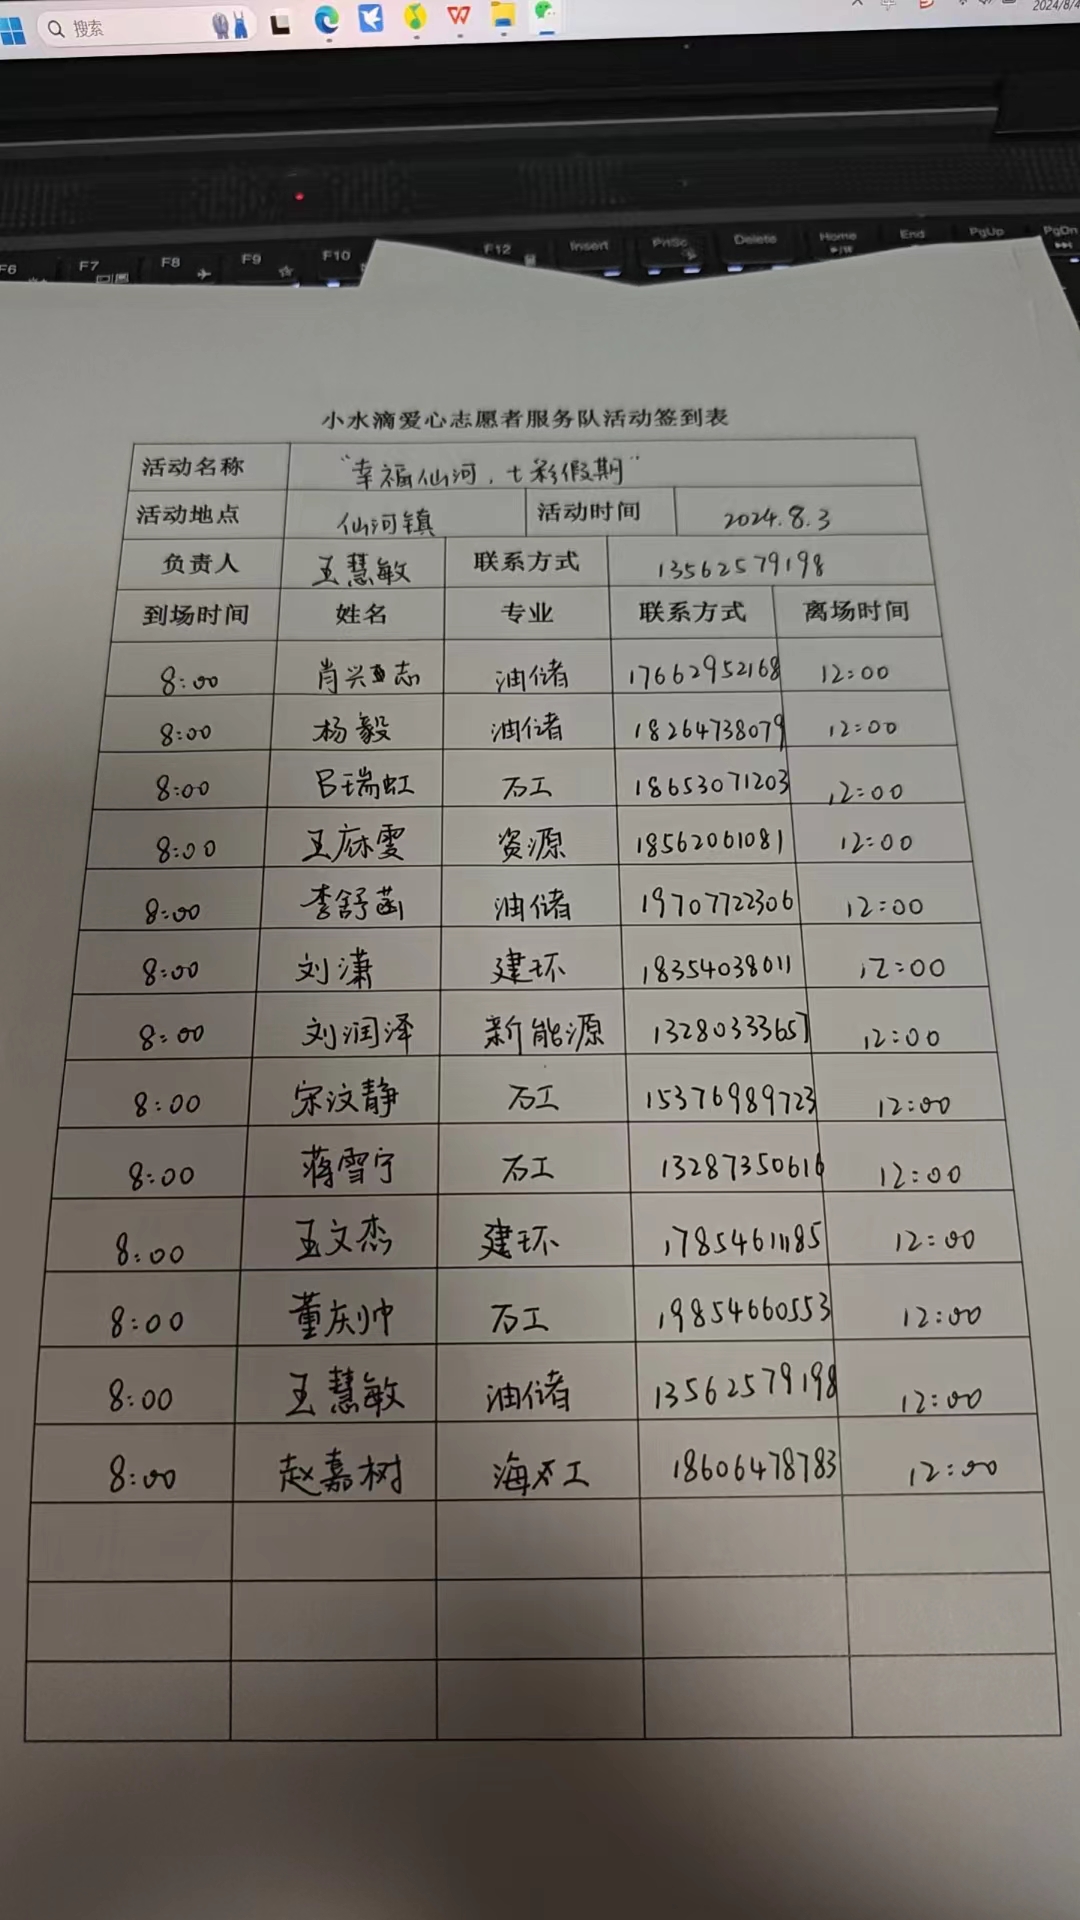 搜索
2024/8/4
F6 F7 F8 F9 F10 F12 Insert PrtSc Delete Home End PgUp PgDn
小水滴爱心志愿者服务队活动签到表
活动名称 “幸福仙河，七彩假期”
活动地点 仙河镇 活动时间 2024.8.3
负责人 王慧敏 联系方式 13562579198
到场时间 姓名 专业 联系方式 离场时间
8:00 肖兴志 油储 17662952168 12:00
8:00 杨毅 油储 18264738079 12:00
8:00 吕瑞虹 石工 18653071203 12:00
8:00 王麻雯 资源 18562061081 12:00
8:00 李舒菡 油储 19707722306 12:00
8:00 刘潇 建环 18354038011 12:00
8:00 刘润泽 新能源 13280333657 12:00
8:00 宋汶静 石工 15376989723 12:00
8:00 蒋雪宁 石工 13287350616 12:00
8:00 王文杰 建环 17854611185 12:00
8:00 董庆帅 石工 19854660553 12:00
8:00 王慧敏 油储 13562579198 12:00
8:00 赵嘉树 海工 18606478783 12:00